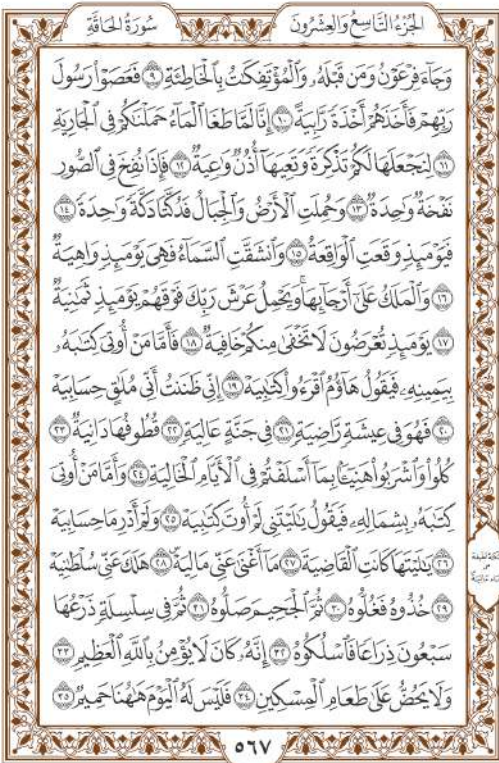 سُورَةُ الحَاقَّةِ
الجُزْءُ التَّاسِعُ وَالعِشْرُونَ
وَجَآءَ فِرْعَوْنُ وَمَن قَبْلَهُۥ وَٱلْمُؤْتَفِكَٰتُ بِٱلْخَاطِئَةِ ٩ فَعَصَوْا۟ رَسُولَ
رَبِّهِمْ فَأَخَذَهُمْ أَخْذَةً رَّابِيَةً ١٠ إِنَّا لَمَّا طَغَا ٱلْمَآءُ حَمَلْنَٰكُمْ فِى ٱلْجَارِيَةِ
١١ لِنَجْعَلَهَا لَكُمْ تَذْكِرَةً وَتَعِيَهَآ أُذُنٌ وَٰعِيَةٌ ١٢ فَإِذَا نُفِخَ فِى ٱلصُّورِ
نَفْخَةٌ وَٰحِدَةٌ ١٣ وَحُمِلَتِ ٱلْأَرْضُ وَٱلْجِبَالُ فَدُكَّتَا دَكَّةً وَٰحِدَةً ١٤
فَيَوْمَئِذٍ وَقَعَتِ ٱلْوَاقِعَةُ ١٥ وَٱنشَقَّتِ ٱلسَّمَآءُ فَهِىَ يَوْمَئِذٍ وَاهِيَةٌ
١٦ وَٱلْمَلَكُ عَلَىٰٓ أَرْجَآئِهَا ۚ وَيَحْمِلُ عَرْشَ رَبِّكَ فَوْقَهُمْ يَوْمَئِذٍ ثَمَٰنِيَةٌ
١٧ يَوْمَئِذٍ تُعْرَضُونَ لَا تَخْفَىٰ مِنكُمْ خَافِيَةٌ ١٨ فَأَمَّا مَنْ أُوتِىَ كِتَٰبَهُۥ
بِيَمِينِهِۦ فَيَقُولُ هَآؤُمُ ٱقْرَءُوا۟ كِتَٰبِيَهْ ١٩ إِنِّى ظَنَنتُ أَنِّى مُلَٰقٍ حِسَابِيَهْ
٢٠ فَهُوَ فِى عِيشَةٍ رَّاضِيَةٍ ٢١ فِى جَنَّةٍ عَالِيَةٍ ٢٢ قُطُوفُهَا دَانِيَةٌ ٢٣
كُلُوا۟ وَٱشْرَبُوا۟ هَنِيٓـًٔۢا بِمَآ أَسْلَفْتُمْ فِى ٱلْأَيَّامِ ٱلْخَالِيَةِ ٢٤ وَأَمَّا مَنْ أُوتِىَ
كِتَٰبَهُۥ بِشِمَالِهِۦ فَيَقُولُ يَٰلَيْتَنِى لَمْ أُوتَ كِتَٰبِيَهْ ٢٥ وَلَمْ أَدْرِ مَا حِسَابِيَهْ
٢٦ يَٰلَيْتَهَا كَانَتِ ٱلْقَاضِيَةَ ٢٧ مَآ أَغْنَىٰ عَنِّى مَالِيَهْ ٢٨ هَلَكَ عَنِّى سُلْطَٰنِيَهْ
٢٩ خُذُوهُ فَغُلُّوهُ ٣٠ ثُمَّ ٱلْجَحِيمَ صَلُّوهُ ٣١ ثُمَّ فِى سِلْسِلَةٍ ذَرْعُهَا
سَبْعُونَ ذِرَاعًا فَٱسْلُكُوهُ ٣٢ إِنَّهُۥ كَانَ لَا يُؤْمِنُ بِٱللَّهِ ٱلْعَظِيمِ ٣٣
وَلَا يَحُضُّ عَلَىٰ طَعَامِ ٱلْمِسْكِينِ ٣٤ فَلَيْسَ لَهُ ٱلْيَوْمَ هَٰهُنَا حَمِيمٌ ٣٥
٥٦٧